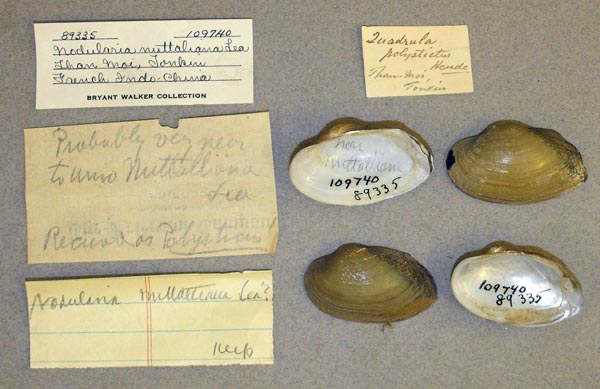 89335 109740
Nodularia nuttaliana Lea
Than Moi, Tonkin
French Indo-China
BRYANT WALKER COLLECTION
Quadrula
polystictus
Heude
Than-Moi,
Tonkin
Probably very near
to Unio Nuttalliana
Lea
Received as Polystictus
Nodularia Lea?
Keep
near
Nuttalliana
109740
89335
109740
89335